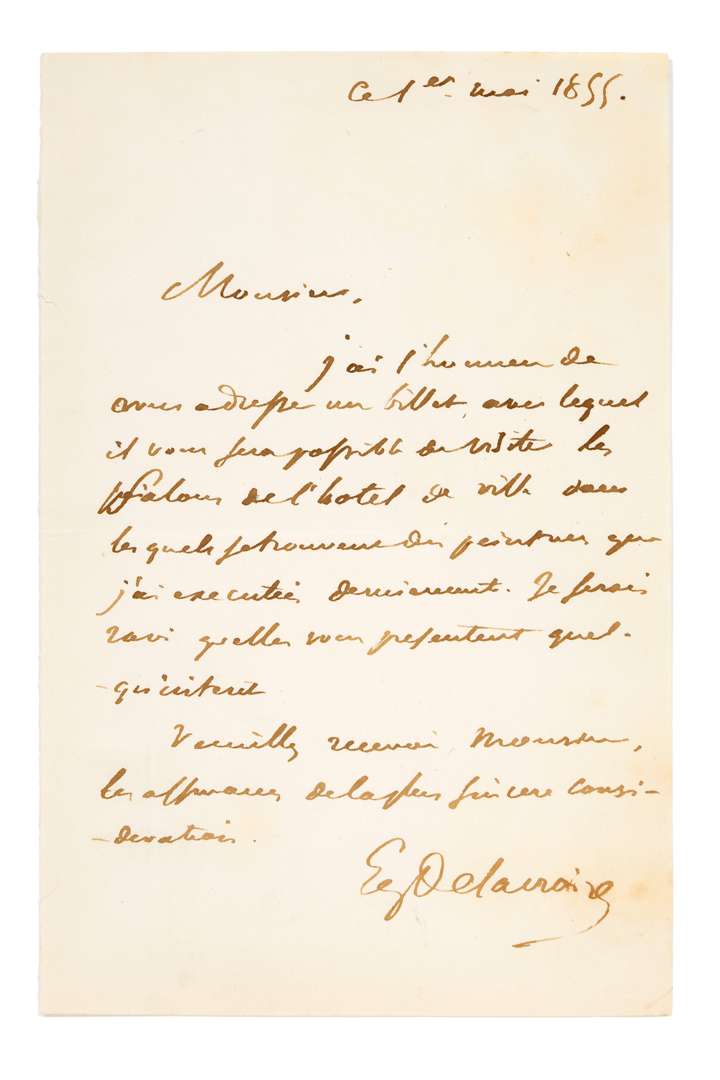 Ce 1er mai 1855.
Monsieur,
j'ai l'honneur de
vous adresser un billet avec lequel
il vous sera possible de visiter les
salons de l'hotel de ville dans
lesquels se trouvent des peintures que
j'ai executées dernierement. Je serais
ravi qu'elles vous presentent quel-
-qu'interet
Veuillez recevoir, Monsieur,
les assurances de la plus sincere consi-
-deration.
Eug Delacroix